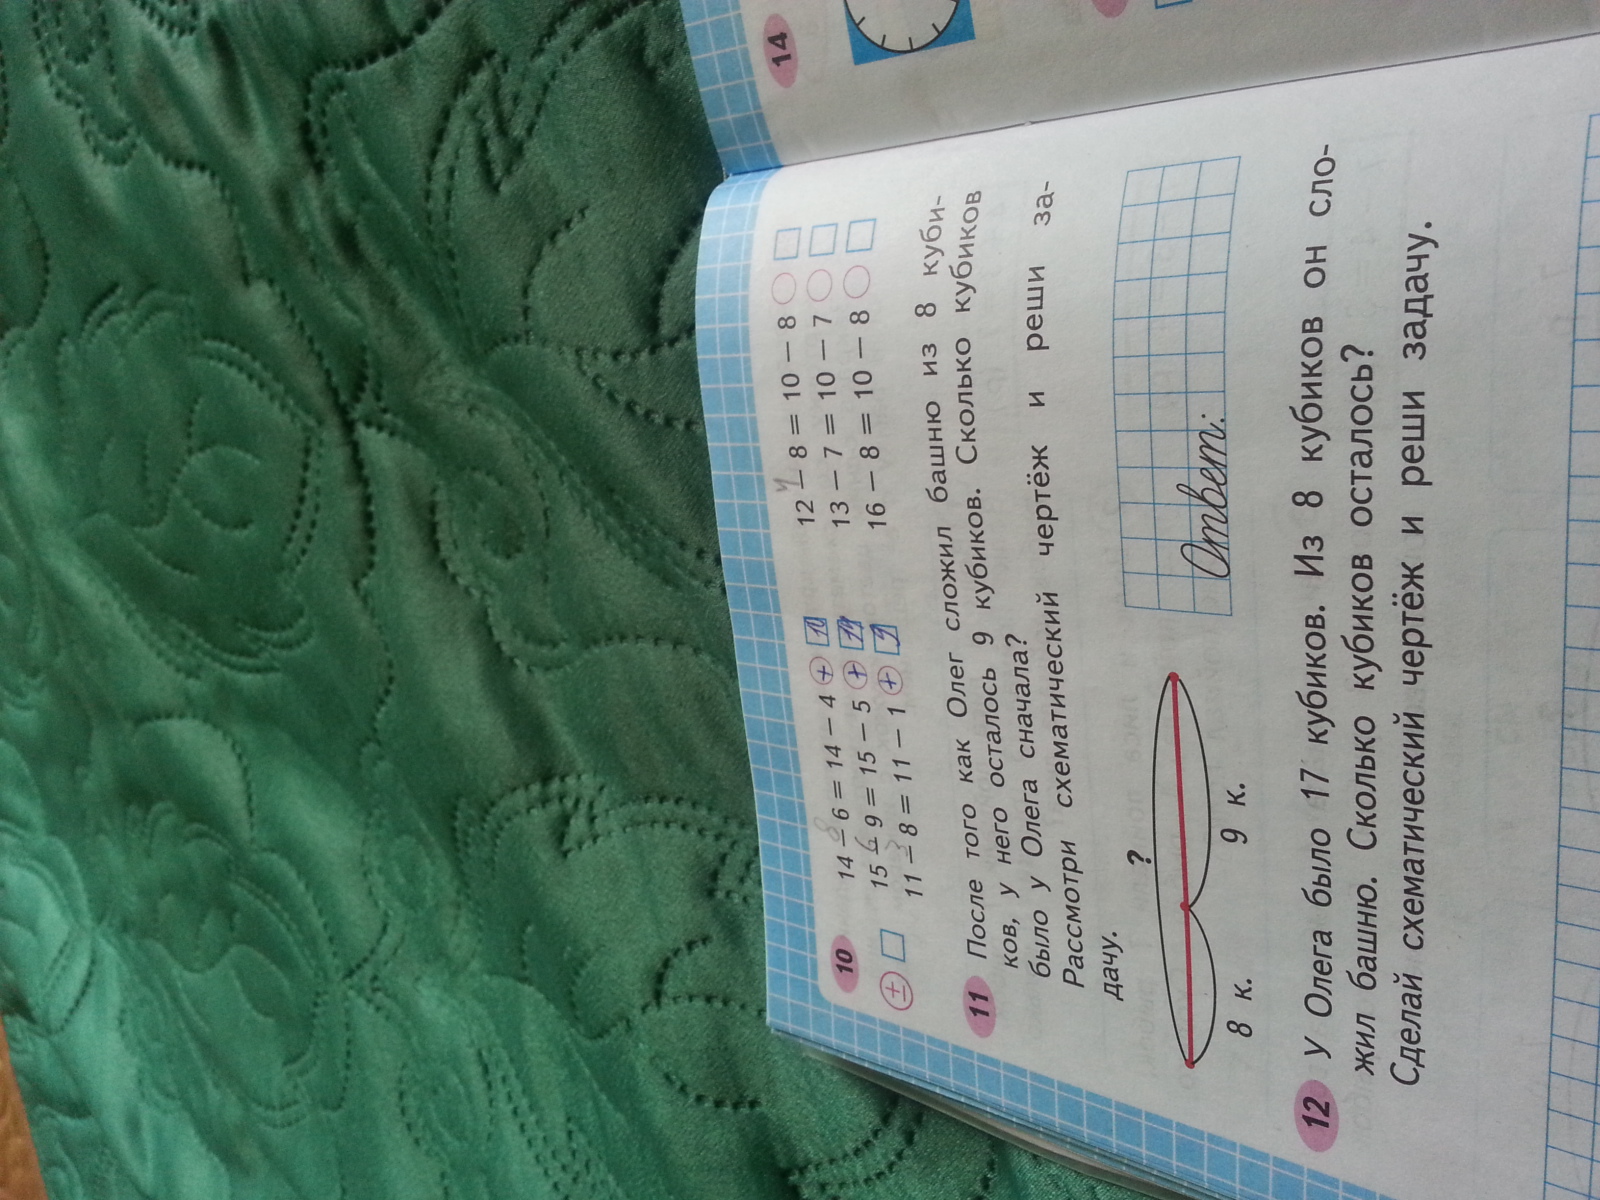 14
10
14 – 6 = 14 – 4 +
12 – 8 = 10 – 8
15 – 9 = 15 – 5 +
13 – 7 = 10 – 7
11 – 8 = 11 – 1 +
16 – 8 = 10 – 8
±
11 После того как Олег сложил башню из 8 куби-
ков, у него осталось 9 кубиков. Сколько кубиков
было у Олега сначала?
Рассмотри схематический чертёж и реши за-
дачу.
?
8 к. 9 к.
Ответ:
12 У Олега было 17 кубиков. Из 8 кубиков он сло-
жил башню. Сколько кубиков осталось?
Сделай схематический чертёж и реши задачу.